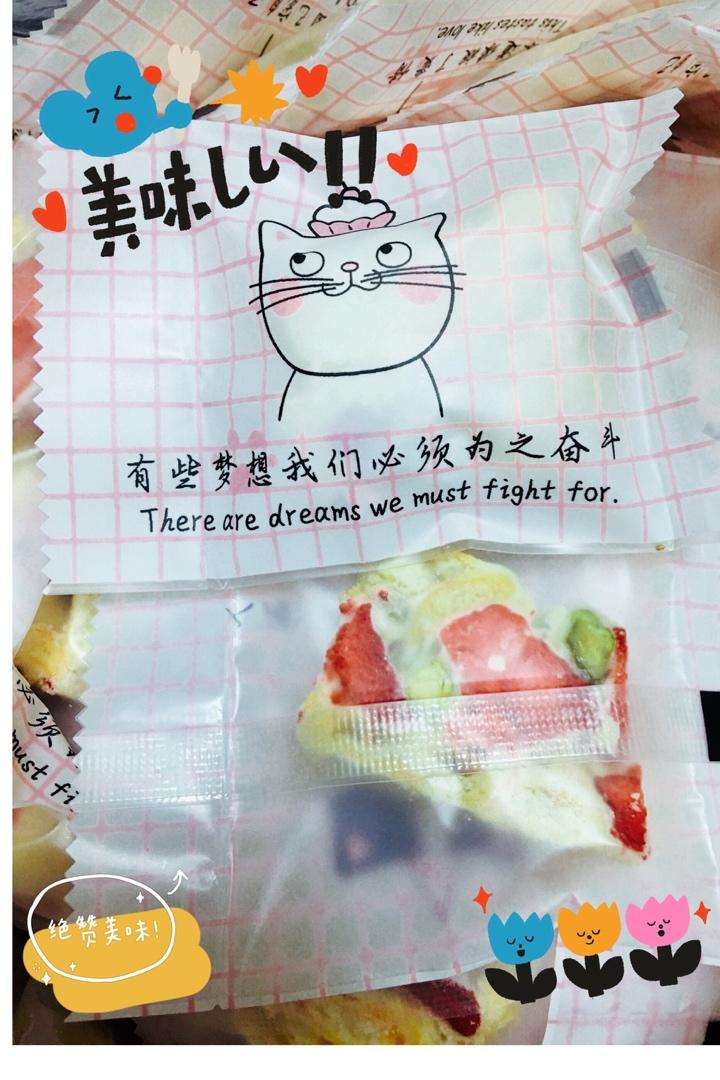 This tastes like love.
美味しい!!
有些梦想我们必须为之奋斗
There are dreams we must fight for.
必须
must fi
绝赞美味!